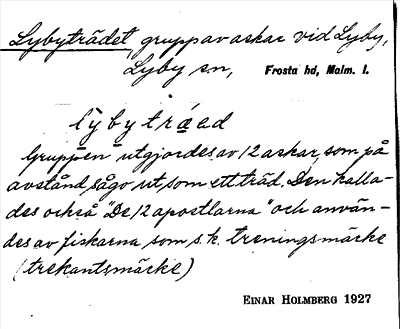 Lybyträdet, grupp av askar vid Lyby,
Lyby sn, Frosta hd, Malm. l.
lybytræed
Gruppen utgjordes av 12 askar, som på
avstånd sågo ut som ett träd. Den kalla-
des också "De 12 apostlarna" och använ-
des av fiskarna som s.k. treningsmärke
(trekantsmärke)
EINAR HOLMBERG 1927